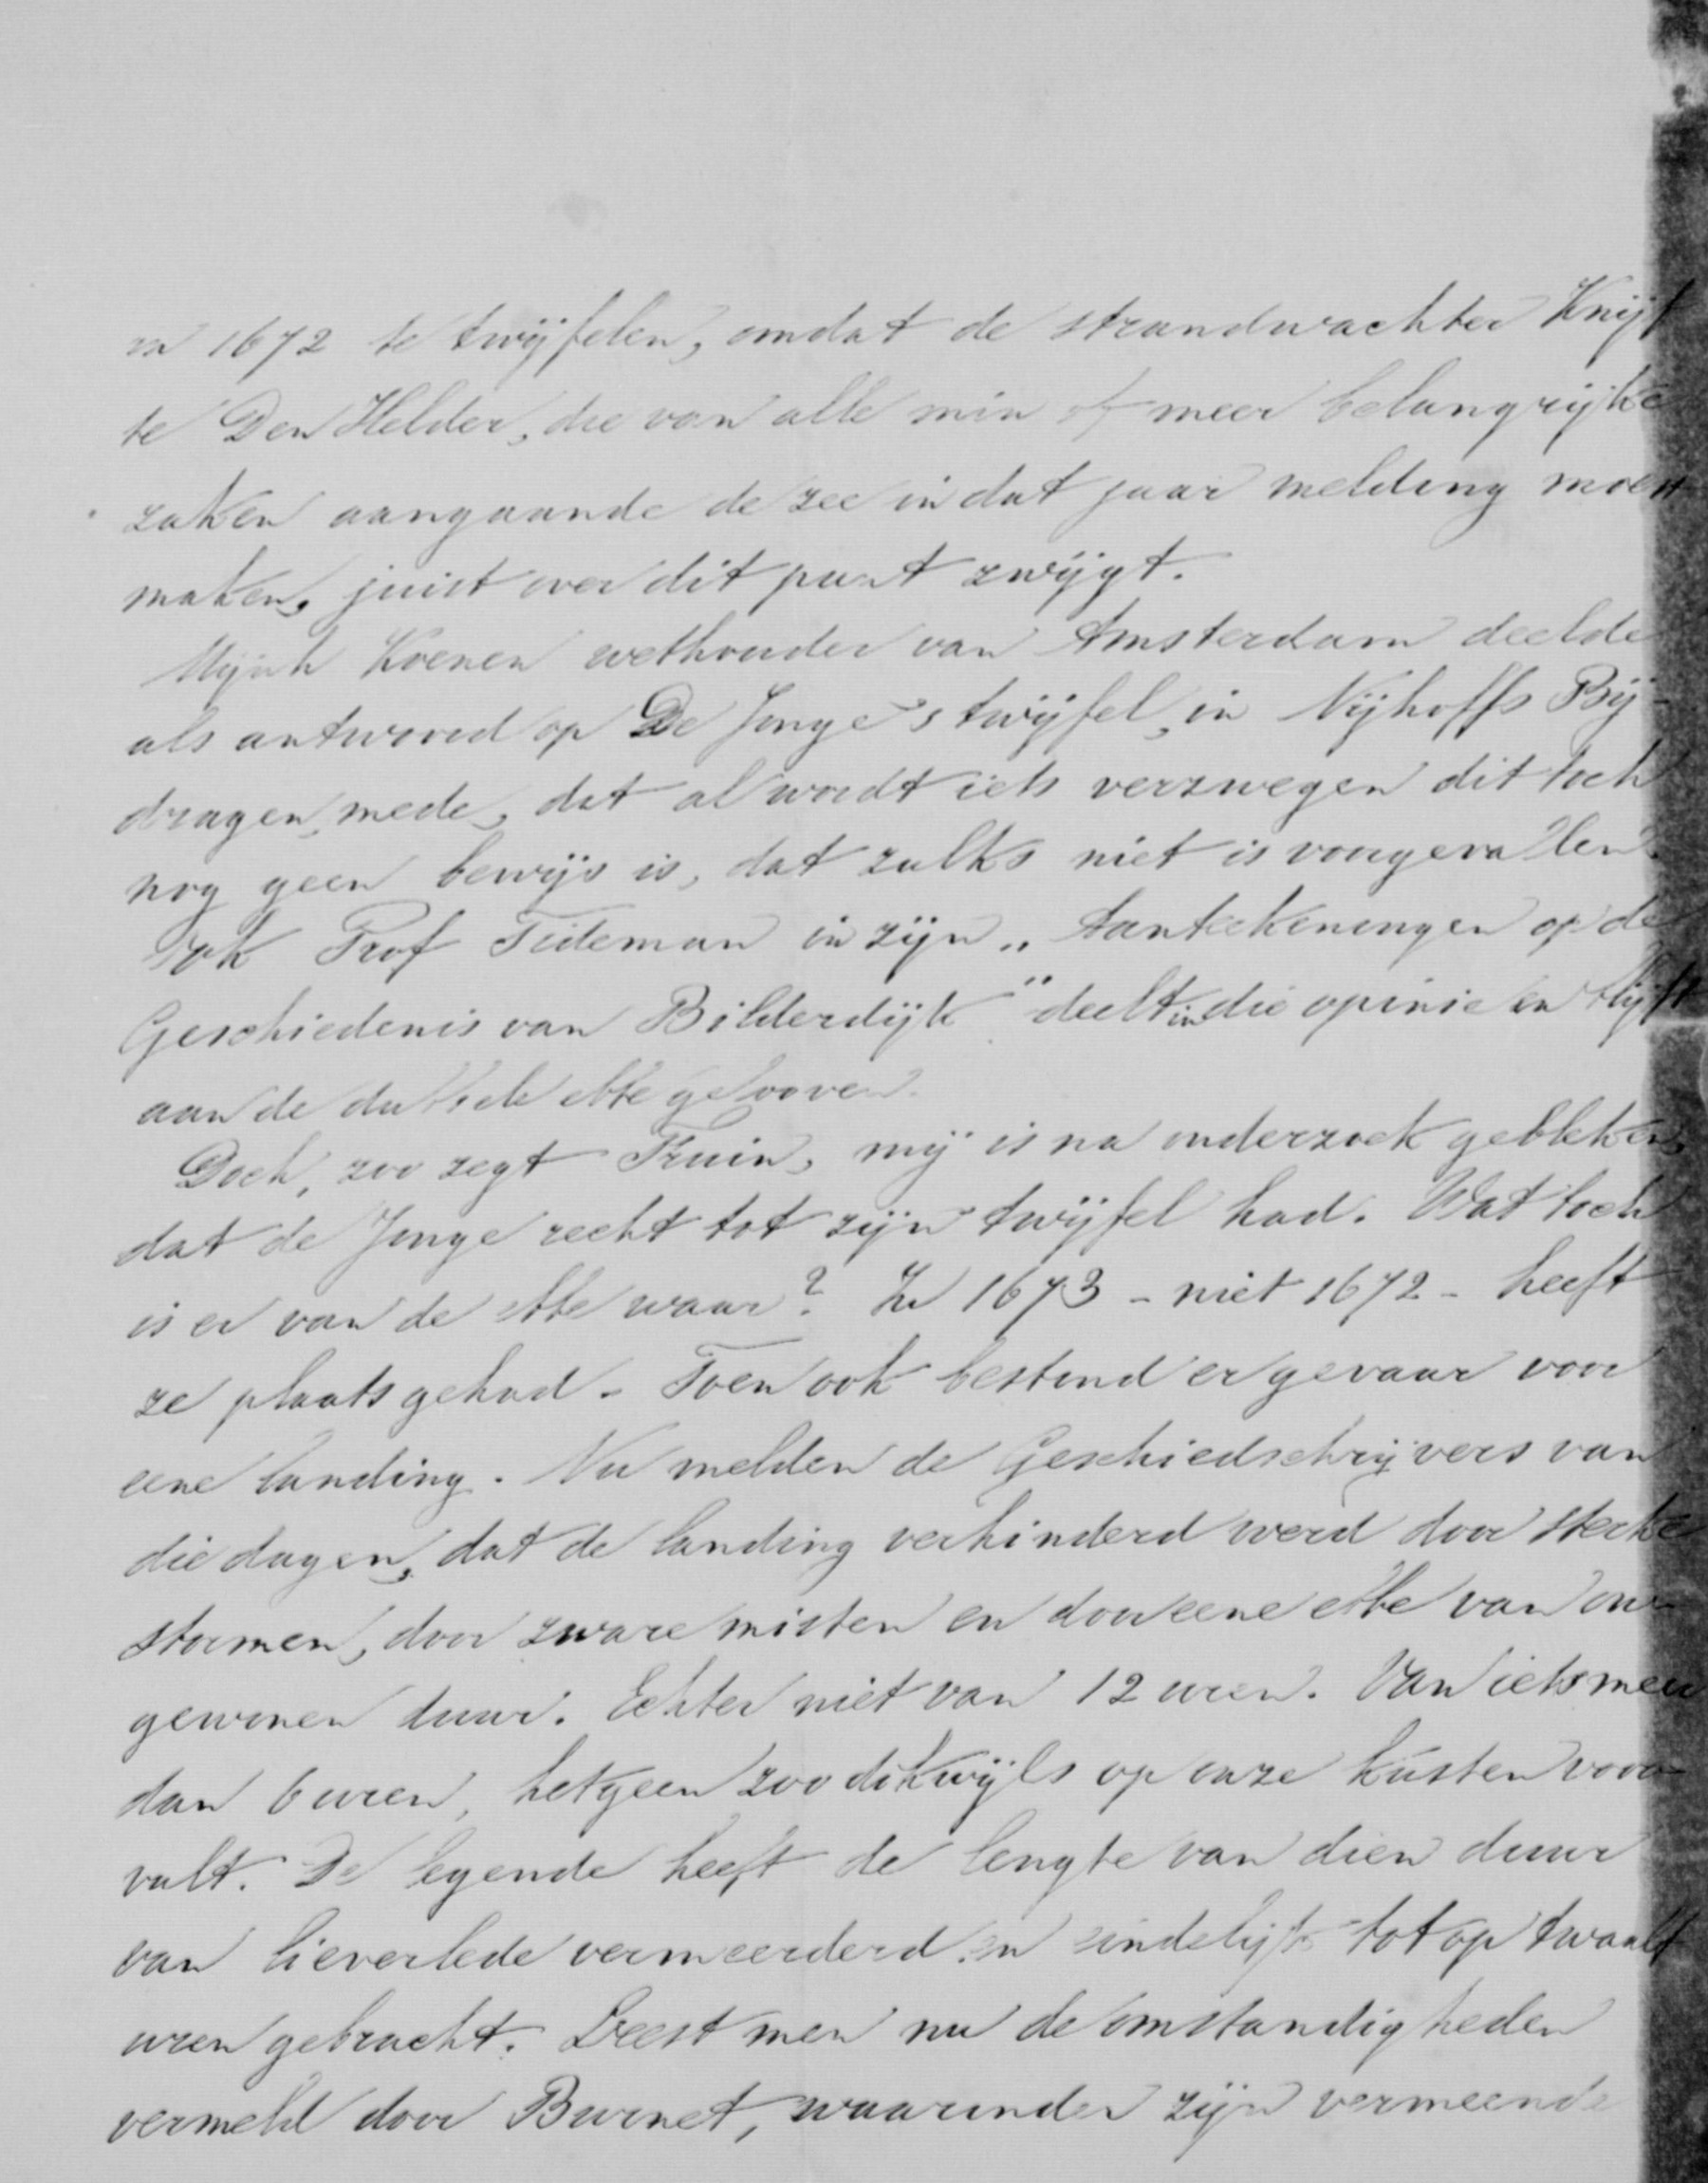 in 1672 te twijfelen, omdat de strandwachter Knijf
te Den Helder, die van alle min of meer belangrijke
zaken aangaande de zee in dat jaar melding moest
maken, juist over dit punt zwijgt.
Koenen wethouder van Amsterdam deelde
als antwoord op De Jonge's twijfel, in Nijhoffs Bij-
dragen, mede, dat al wordt iets verzwegen dit toch
nog geen bewijs is, dat zulks niet is voorgevallen.
Ook Prof Tideman in zijn „Aanteekeningen op de
Geschiedenis van Bilderdijk" deelt in die opinie en blijft
aan de dubbele ebbe gelooven.
Doch, zoo zegt Fruin, mij is na onderzoek gebleken,
dat de Jonge recht tot zijn twijfel had. Wat toch
is er van de ebbe waar? In 1673 - niet 1672 - heeft
ze plaats gehad. Toen ook bestond er gevaar voor
eene landing. Nu melden de Geschiedschrijvers van
die dagen, dat de landing verhinderd werd door sterke
stormen, door zware misten en door eene ebbe van on-
gewonen duur. Echter niet van 12 uren. Van iets meer
dan 6 uren, hetgeen zoo dikwijls op onze kusten voor-
valt. De legende heeft de lengte van dien duur
van lieverlede vermeerderd en eindelijk tot op twaalf
uren gebracht. Leest men nu de omstandigheden
vermeld door Burnet, waaronder zijn vermeende